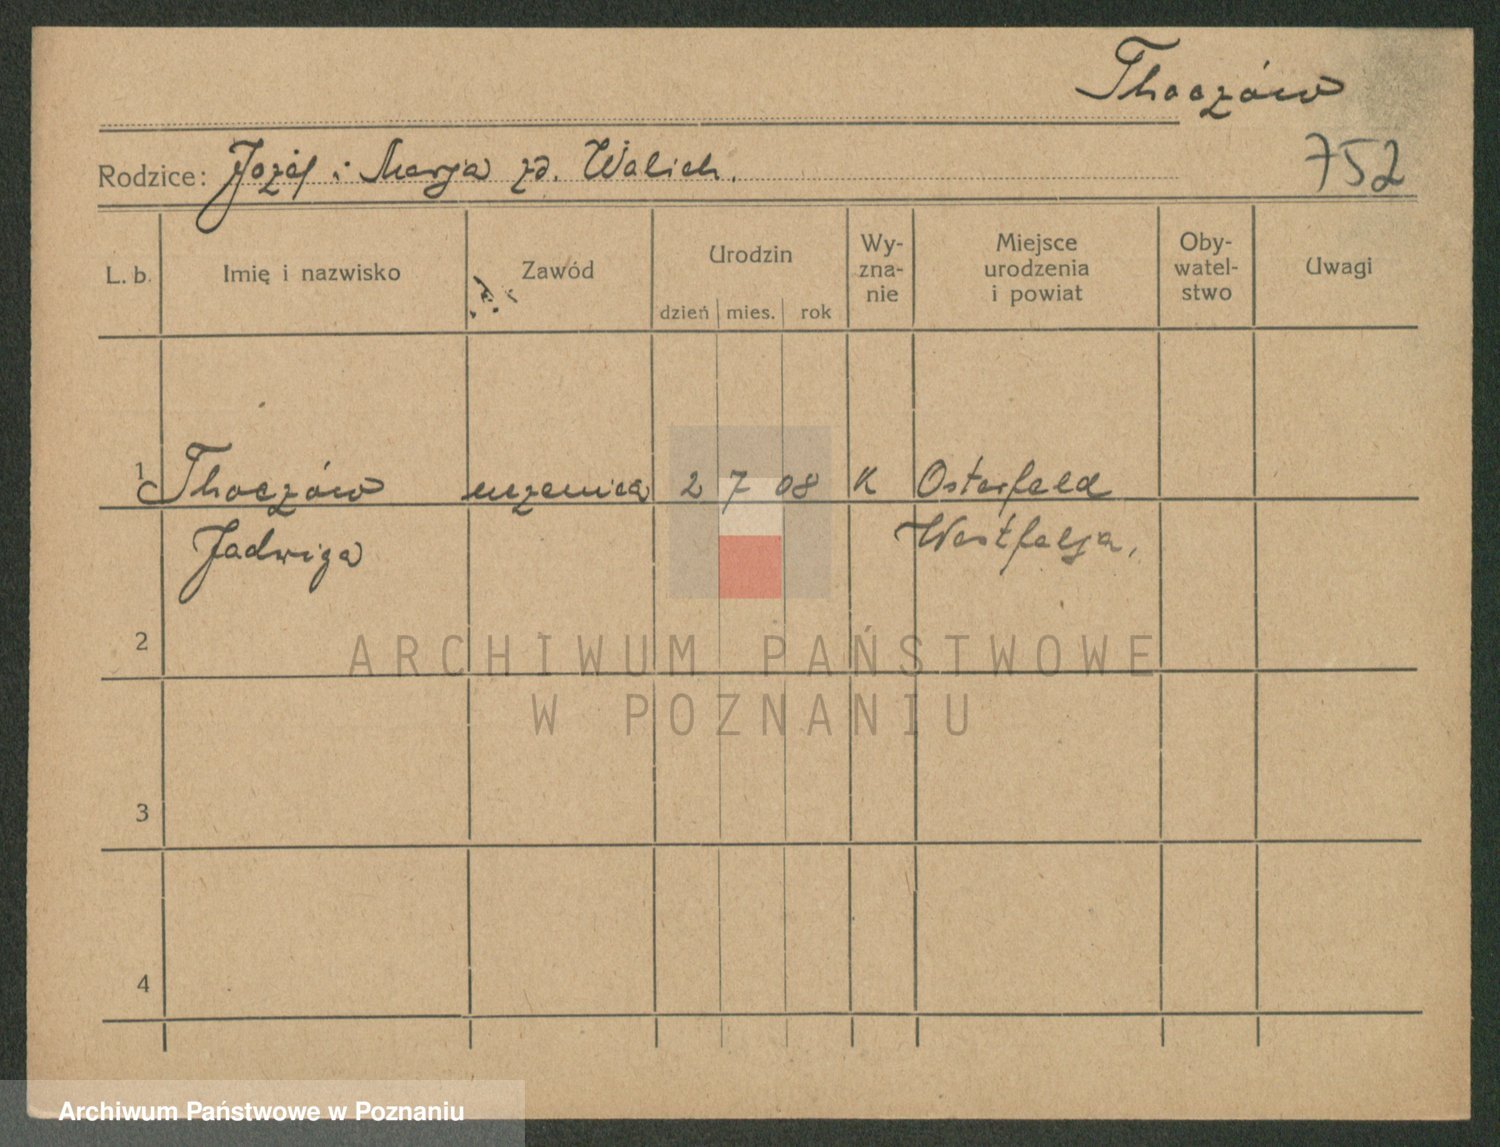 Thoczów
Rodzice: Józef i Marja zd. Walich.
752
L. b. Imię i nazwisko Zawód Urodzin dzień mies. rok Wy-zna-nie Miejsce urodzenia i powiat Oby-watel-stwo Uwagi
1 Thoczów uczenica 2 7 08 K Osterfeld
Jadwiga Westfalja.
2
ARCHIWUM PAŃSTWOWE
W POZNANIU
3
4
Archiwum Państwowe w Poznaniu